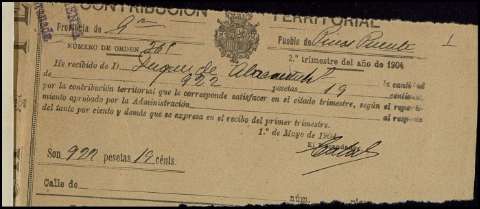 CONTRIBUCIÓN TERRITORIAL
Provincia de Gra
Pueblo de Pinos Puente 1
NÚMERO DE ORDEN 268
2.º trimestre del año de 1904
He recibido de D. Duque de la cantidad
de 922 pesetas 19 céntimos,
por la contribución territorial que le corresponde satisfacer en el citado trimestre, según el reparti-
miento aprobado por la Administración al respecto
del tanto por ciento y demás que se expresa en el recibo del primer trimestre.
1.º de Mayo de 1904
El Recaudador,
Son 922 pesetas 19 cénts.
Calle de núm.